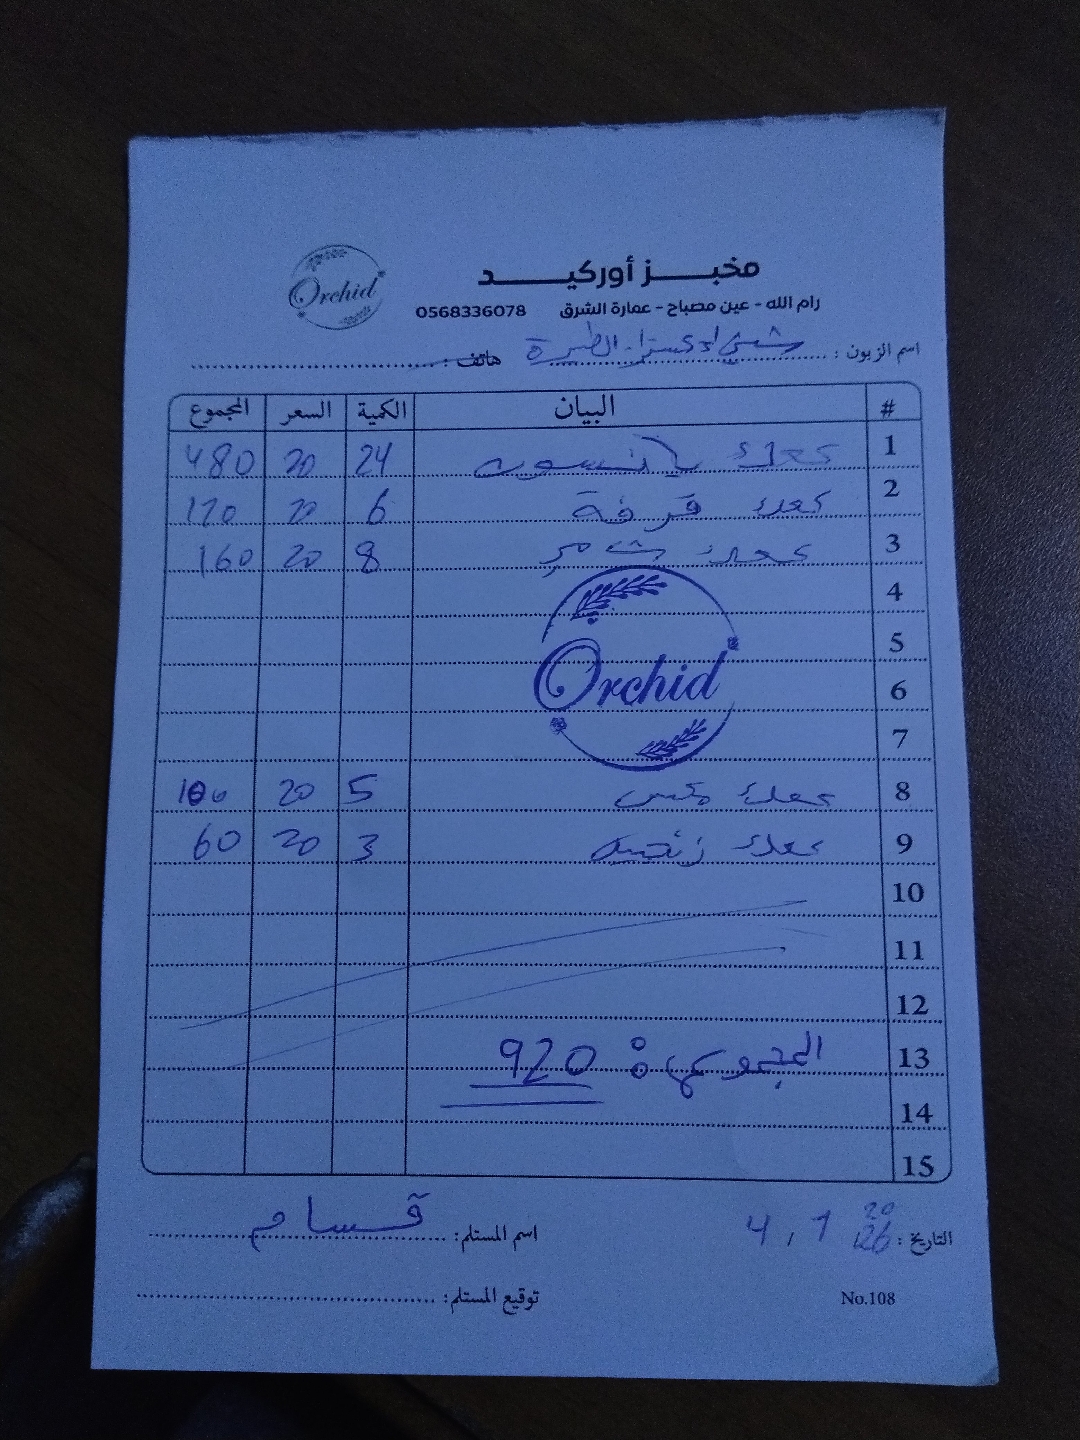 Orchid
مخبز أوركيد
رام الله - عين مصباح - عمارة الشرق 0568336078
اسم الزبون : اكسترا الطيرة هاتف :
# البيان الكمية السعر المجموع
1 كعك يانسون 24 20 480
2 كعك قرفة 6 20 120
3 كعك شومر 8 20 160
4
Orchid
5
6
7
8 كعك مكس 5 20 100
9 كعك زنجبيل 3 20 60
10
11
12
13 المجموع : 920
14
15
التاريخ : 2026 1 , 4 اسم المستلم : قسام
توقيع المستلم :
No.108